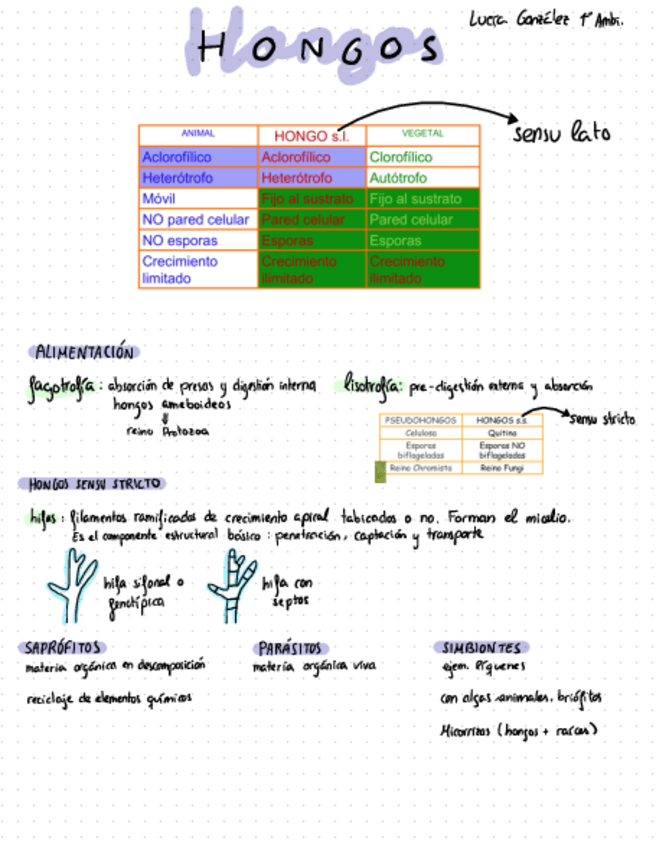 Lucía González 1º Ambi.
HONGOS
ANIMAL HONGO s.l. VEGETAL
sensu lato
Aclorofílico Aclorofílico Clorofílico
Heterótrofo Heterótrofo Autótrofo
Móvil Fijo al sustrato Fijo al sustrato
NO pared celular Pared celular Pared celular
NO esporas Esporas Esporas
Crecimiento limitado Crecimiento ilimitado Crecimiento ilimitado
ALIMENTACIÓN
fagotrofía: absorción de presas y digestión interna
hongos ameboideos
reino Protozoa
lisotrofía: pre-digestión externa y absorción
PSEUDOHONGOS HONGOS s.s.
sensu stricto
Celulosa Quitina
Esporas biflageladas Esporas NO biflageladas
Reino Chromista Reino Fungi
HONGOS SENSU STRICTO
hifas: filamentos ramificados de crecimiento apical tabicados o no. Forman el micelio.
Es el componente estructural básico: penetración, captación y transporte
hifa sifonal o
hifa con
septos
SAPRÓFITOS
materia orgánica en descomposición
reciclaje de elementos químicos
PARÁSITOS
materia orgánica viva
SIMBIONTES
ejem. líquenes
con algas, animales, briófitos
Micorrizas (hongos + raíces)